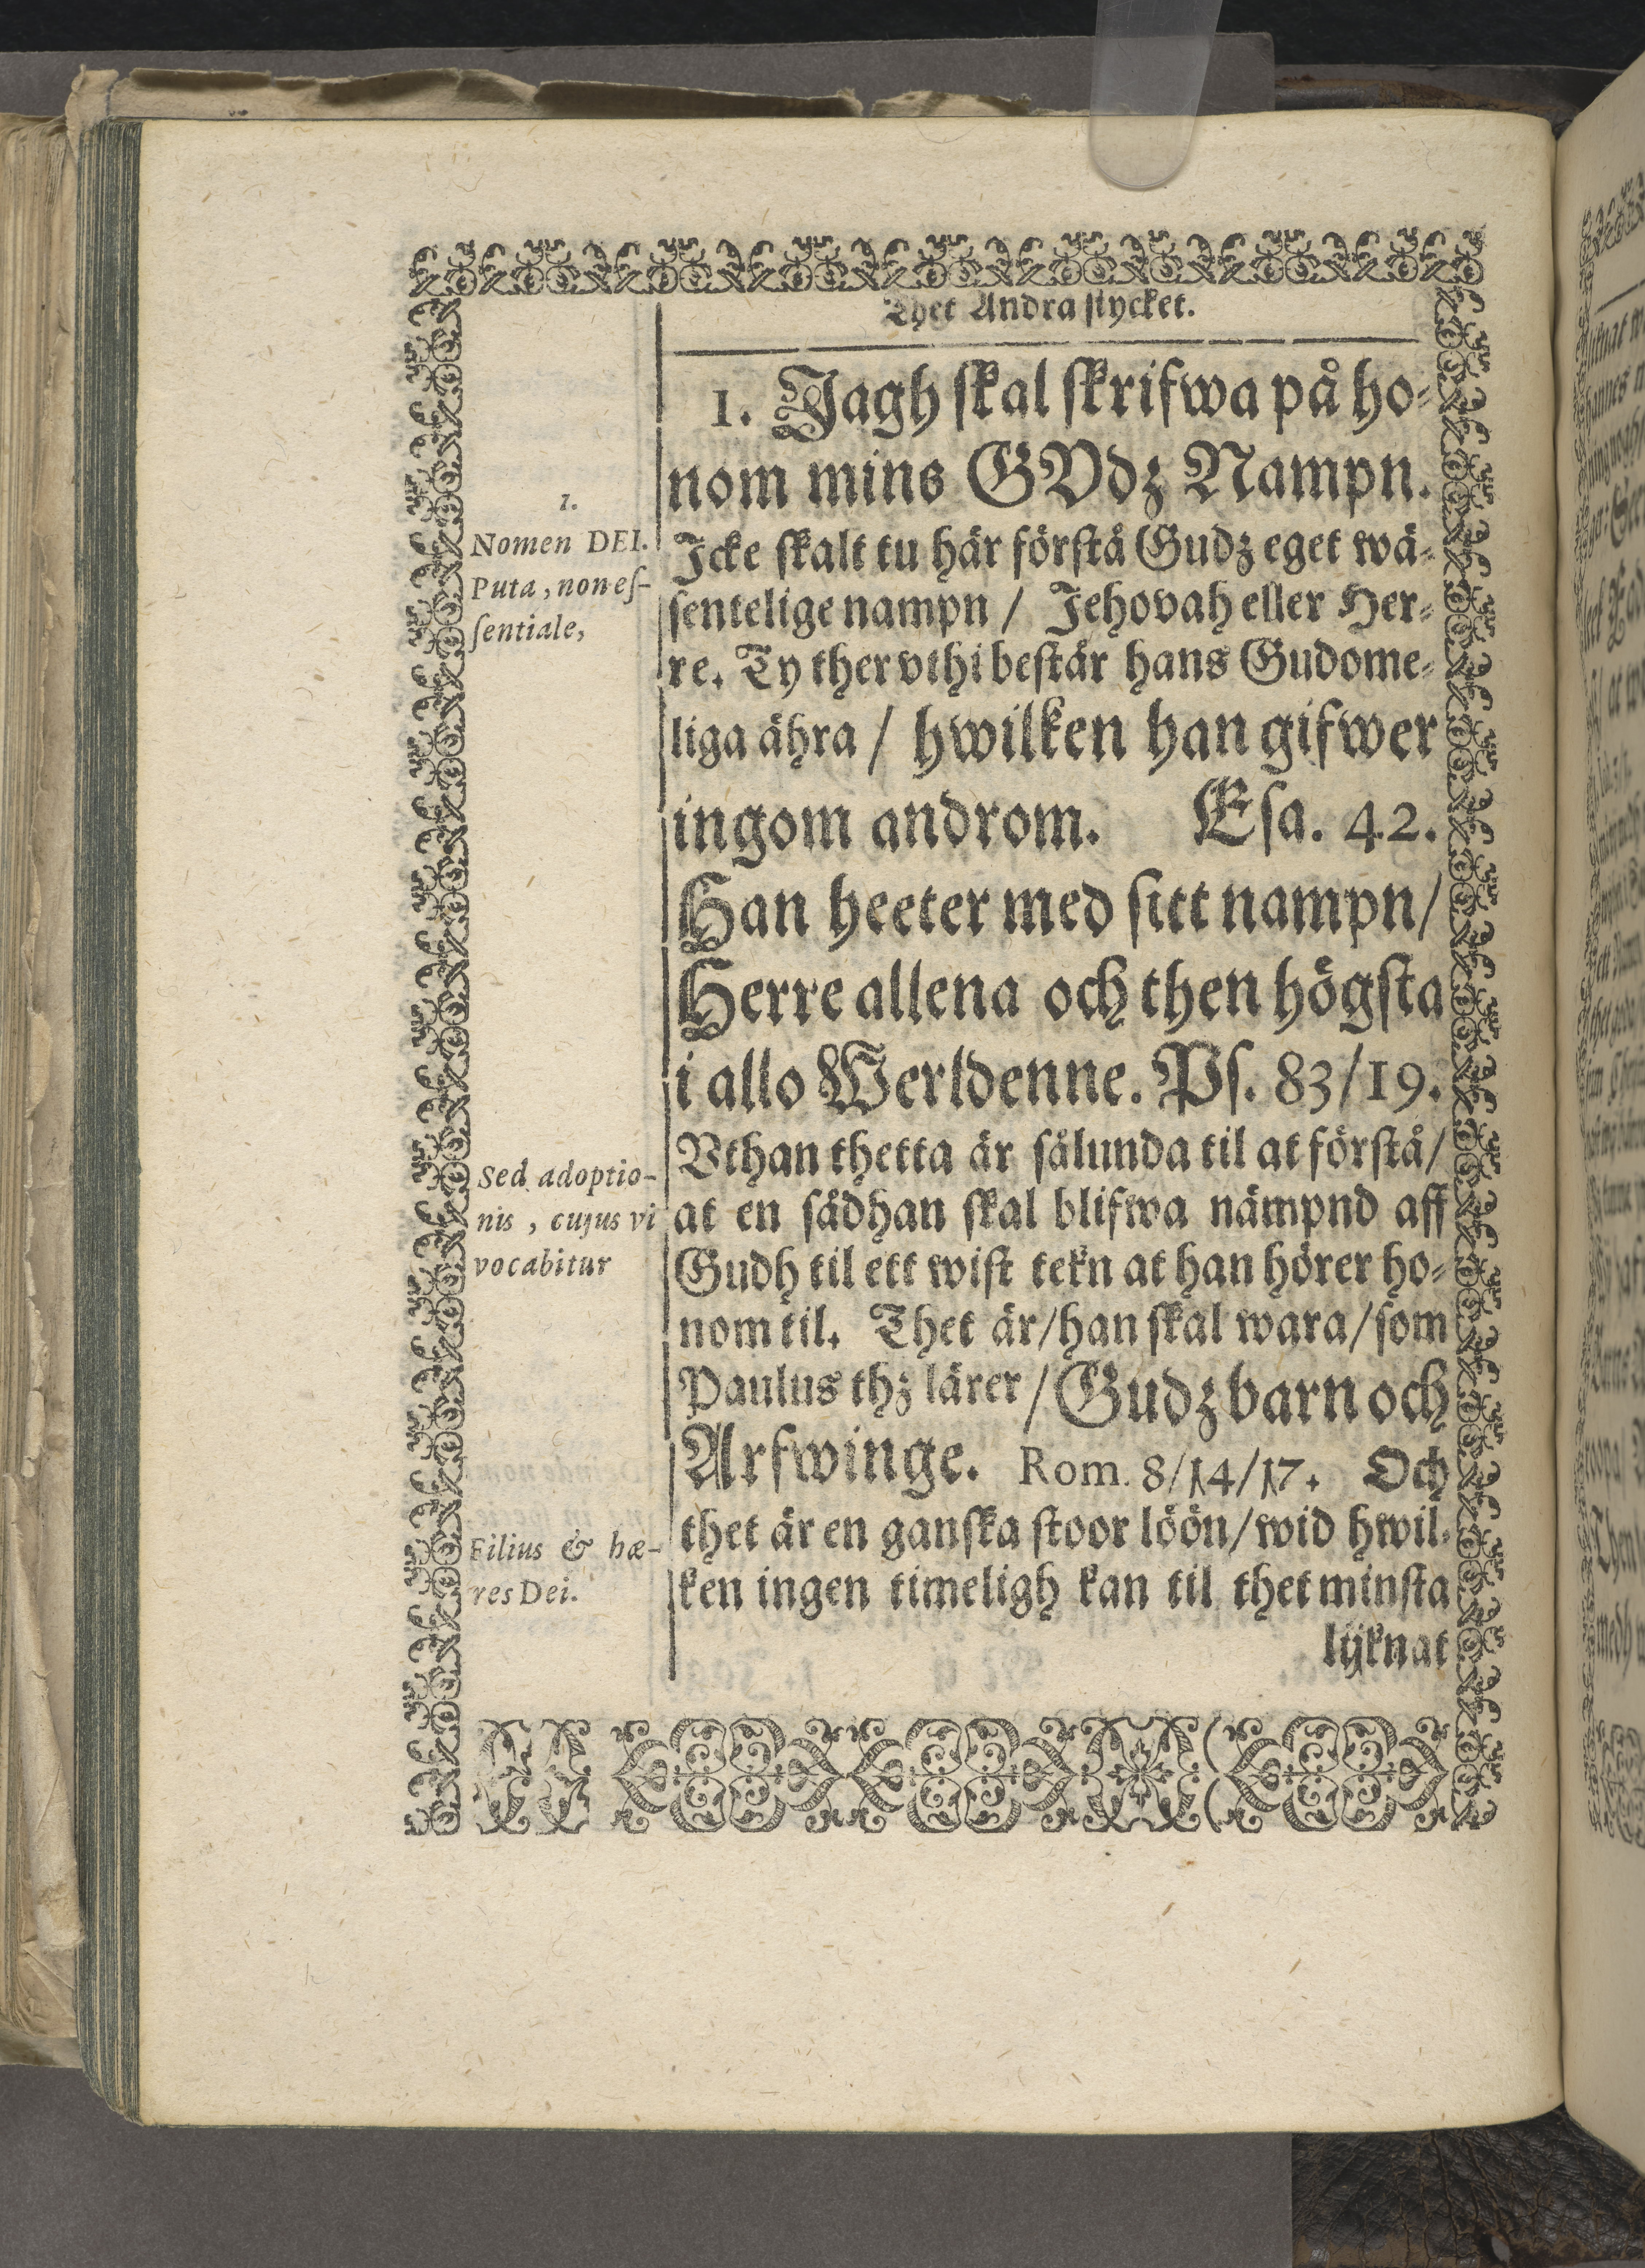 Thet Andra stycket.
1. Jagh skal skrifwa på ho-
nom mins GVdz Nampn.
1.
Nomen DEI.
Puta, non es-
sentiale,
Icke skalt tu här förstå Gudz eget wä-
sentelige nampn / Jehovah eller Her-
re. Ty ther vthi bestär hans Gudome-
liga ähra / hwilken han gifwer
ingom androm. Esa. 42.
Han heeter med sitt nampn/
Herre allena och then högsta
i allo Werldenne. Ps. 83/19.
Sed adoptio-
nis, cujus vi
vocabitur
Vthan thetta är sålunda til at förstå/
at en sådhan skal blifwa nämpnd aff
Gudh til ett wist tekn at han hörer ho-
nom til. Thet är/han skal wara/som
Paulus thz lärer/Gudz barn och
Arfwinge. Rom. 8/14/17. Och
Filius & hæ-
res Dei.
thet är en ganska stoor löön/wid hwil-
ken ingen timeligh kan til thet minsta
lijknat